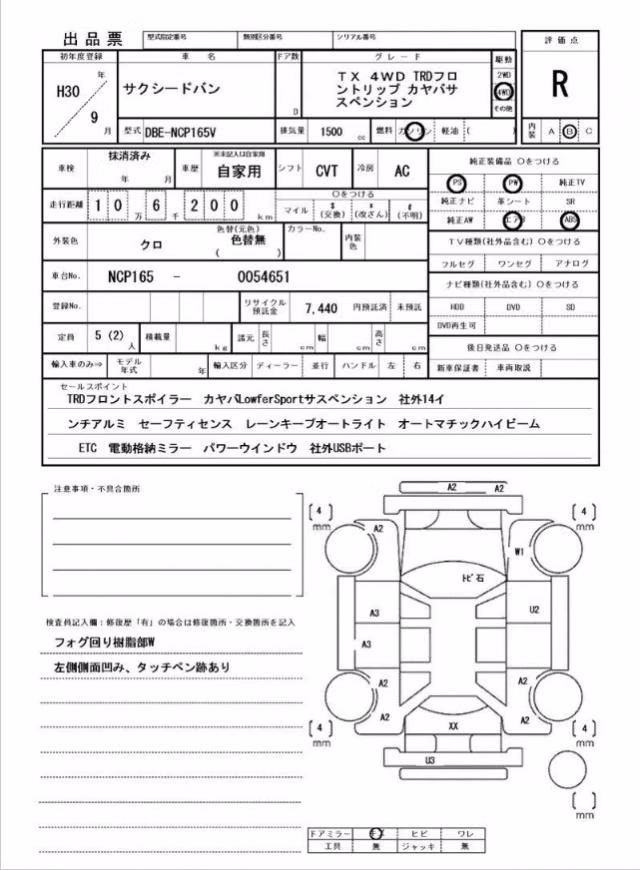 出品票 型式指定番号 類別区分番号 シリアル番号
評価点
初年度登録 車名 ドア数 グレード 駆動
H30 年 9 月
サクシードバン
D
TX 4WD TRDフロ
ントリップ カヤバサ
スペンション
2WD
4WD
その他
R
型式 DBE-NCP165V 排気量 1500 cc 燃料 ガソリン 軽油 ( )
内装 A B C
車検 抹消済み 年 月 車歴 ※未記入は自家用 自家用 シフト CVT 冷房 AC
純正装備品 〇をつける
PS PW 純正TV
純正ナビ 革シート SR
純正AW エアB ABS
走行距離 1 0 万 6 千 2 0 0 km
〇をつける
マイル $(交換) x(改ざん) #(不明)
外装色 クロ 色替(元色) 色替無 ( ) カラーNo. 内装色
TV種類(社外品含む) 〇をつける
フルセグ ワンセグ アナログ
車台No. NCP165 - 0054651
ナビ種類(社外品含む) 〇をつける
HDD DVD SD
DVD再生可
登録No. リサイクル預託金 7,440 円預託済 未預託
定員 5 (2) 人 積載量 kg 諸元 長さ cm 幅 cm 高さ cm
後日発送品 〇をつける
新車保証書 車両取説
輸入車のみ⇒ モデル年式 年 輸入区分 ディーラー 並行 ハンドル 左 右
セールスポイント
TRDフロントスポイラー カヤバLowferSportサスペンション 社外14イ
ンチアルミ セーフティセンス レーンキープオートライト オートマチックハイビーム
ETC 電動格納ミラー パワーウインドウ 社外USBポート
注意事項・不具合箇所
検査員記入欄:修復歴「有」の場合は修復箇所・交換箇所を記入
フォグ回り樹脂部W
左側側面凹み、タッチペン跡あり
A2 A2
[4] mm [4] mm
A2 W1
トビ石
A3 U2
A3
A2 A2
A2 A2
XX
[4] mm [4] mm
U3
[ ] mm
ドアミラー ヒビ ワレ
工具 無 ジャッキ 無